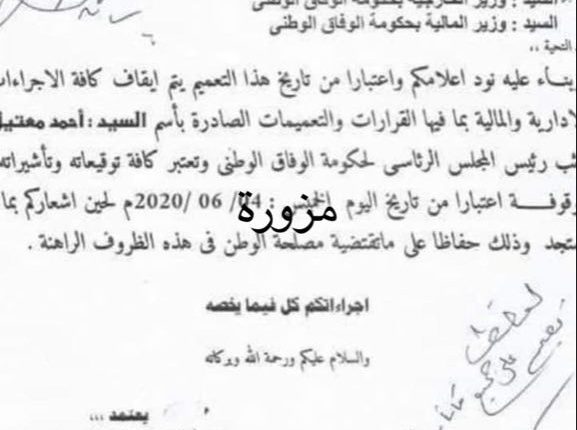 السيد : وزير الخارجية بحكومة الوفاق الوطنى
السيد : وزير المالية بحكومة الوفاق الوطنى
التحية ،،
بناء عليه نود اعلامكم واعتبارا من تاريخ هذا التعميم يتم ايقاف كافة الاجراءات
لادارية والمالية بما فيها القرارات والتعميمات الصادرة بأسم السيد : أحمد معتيق
ئب رئيس المجلس الرئاسى لحكومة الوفاق الوطنى وتعتبر كافة توقيعاته وتأشيراته
وقوفة اعتبارا من تاريخ اليوم : 04/ 06 /2020م لحين اشعاركم بما
مزورة
ستجد وذلك حفاظا على ماتقتضية مصلحة الوطن فى هذه الظروف الراهنة .
اجراءاتكم كل فيما يخصه
والسلام عليكم ورحمة الله وبركاته
يعتمد ...